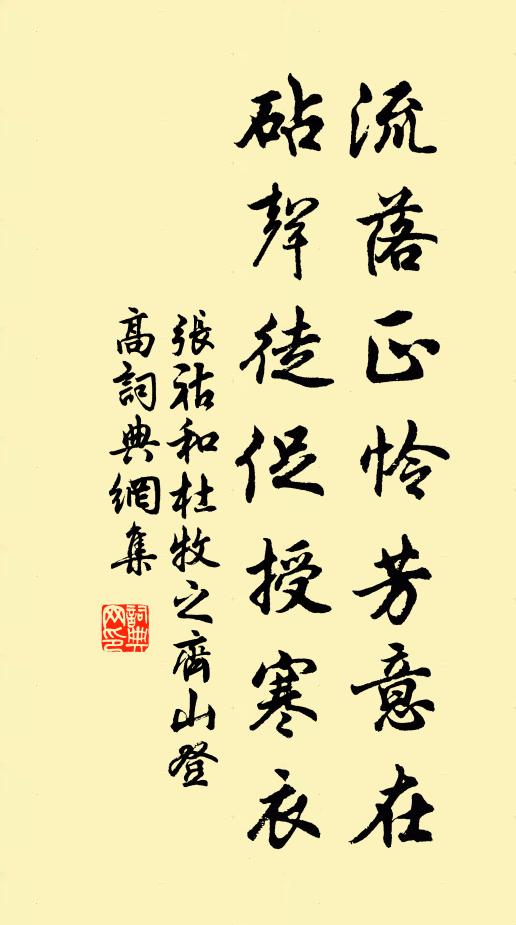 流落正怜芳意在
砧聲徒促授寒衣
張祜和杜牧之齊山登
高詞典網集
詞典网印